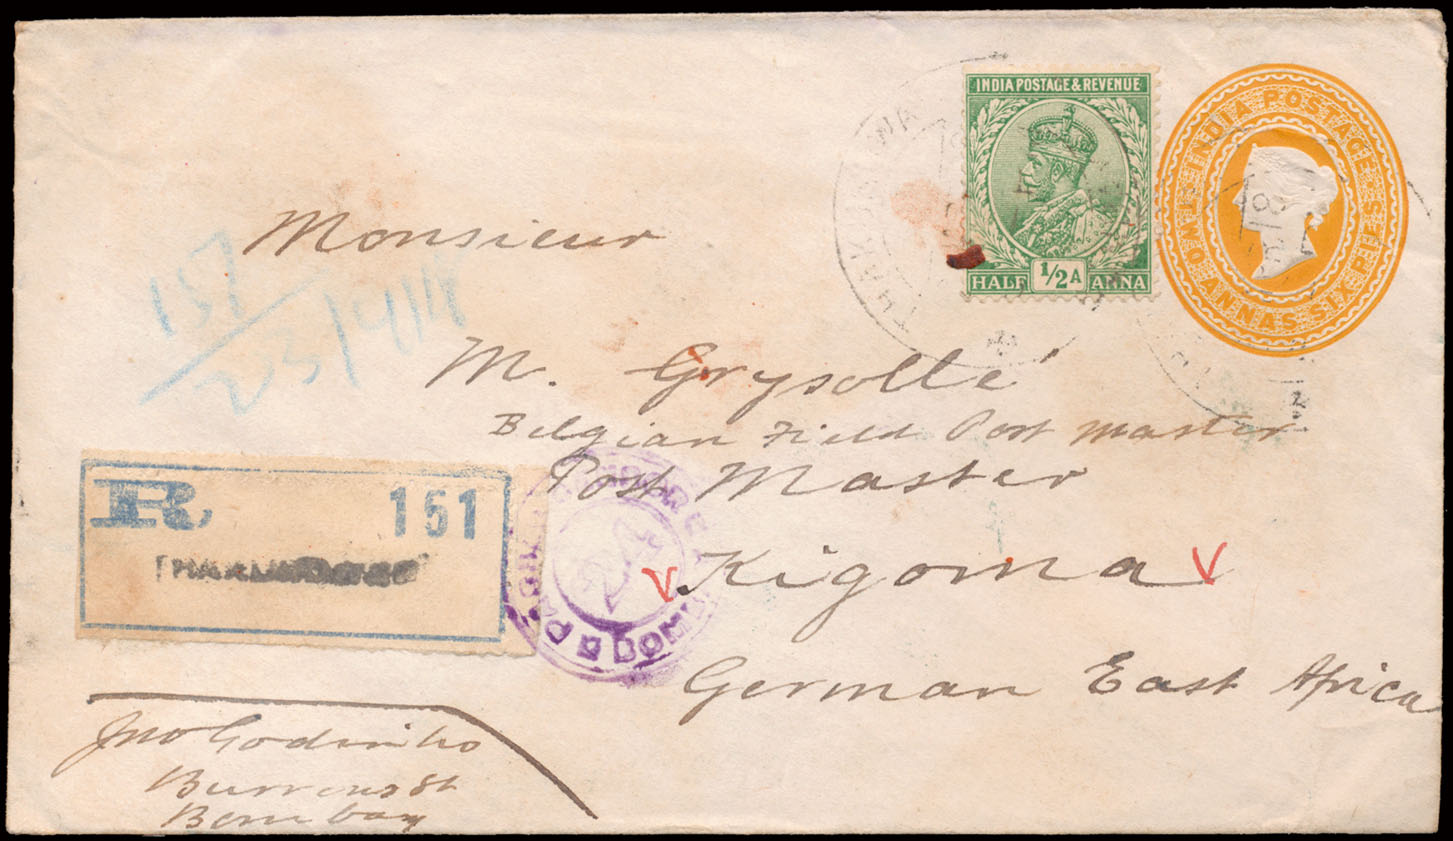 INDIA POSTAGE & REVENUE
HALF 1/2A ANNA
INDIA POSTAGE
ONE TWO ANNAS SIX PIES
Monsieur
157
23/4/18
M. Grysolle
Belgian Field Post Master
Post Master
Kigoma
German East Africa
R 151
PASSED
BOMBAY
Jno Godinho
Burrows St
Bombay